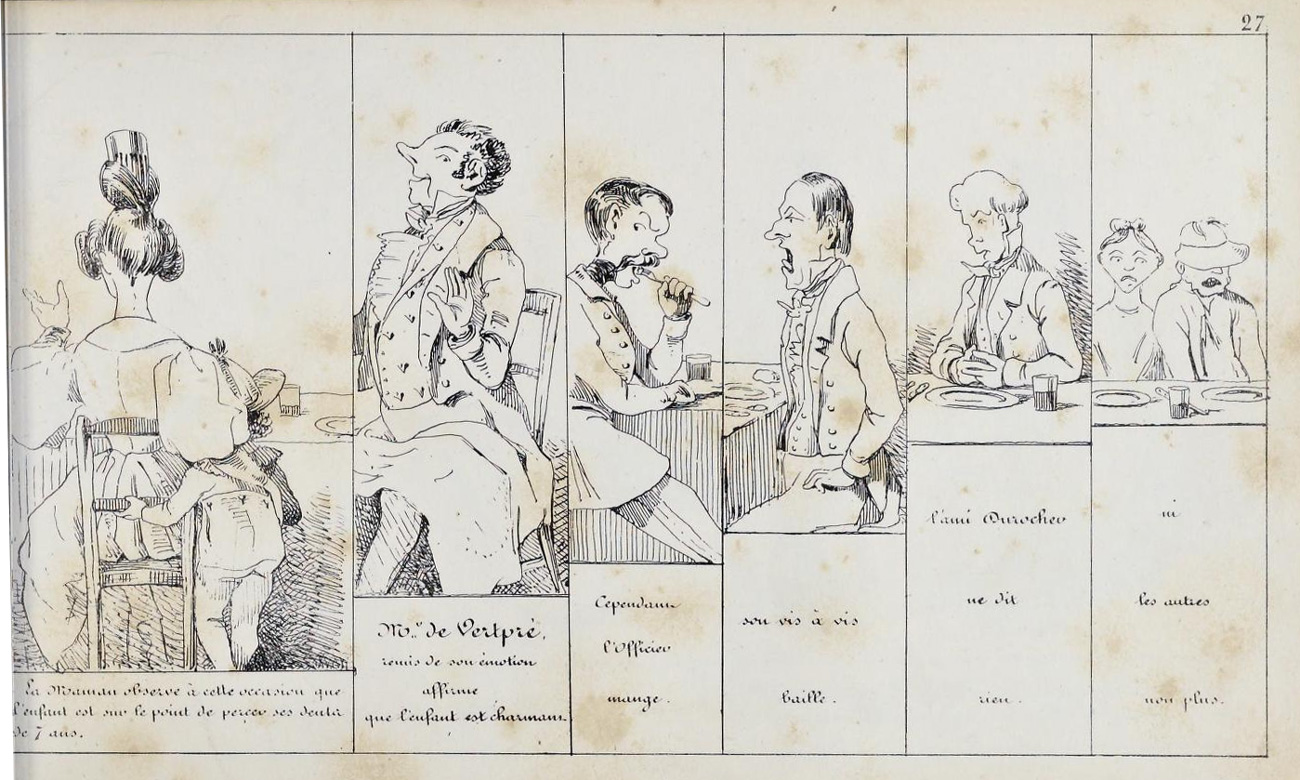 27
La Maman observe à cette occasion que
l'enfant est sur le point de percer ses dents
de 7 ans.
Mr. de Vertpré,
remis de son émotion
affirme
que l'enfant est charmant.
Cependant
l'Officier
mange.
son vis à vis
baille.
l'ami Durocher
ne dit
rien.
ni
les autres
non plus.